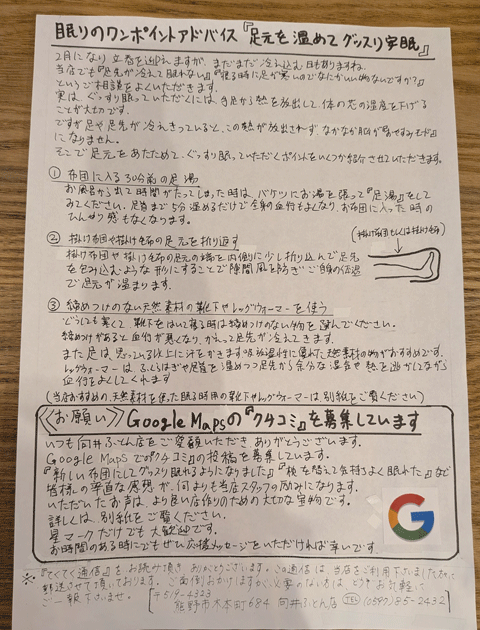 眠りのワンポイントアドバイス『足元を温めてグッスリ安眠』
2月になり立春を迎えますが、まだまだ冷え込む日もありますね。
当店でも『足先が冷えて眠れない』『寝る時に足が寒いのでなにかいい物ないですか?』
というご相談をよくいただきます。
実は、ぐっすり眠っていただくには、手足から熱を放出して、体の芯の温度を下げる
ことが大切です。
ですが足や足先が冷えきっていると、この熱が放出されず、なかなか脳が『おやすみモード』
になりません。
そこで足元をあたためて、ぐっすり眠っていただくポイントをいくつか紹介させていただきます。
① 布団に入る30分前の足湯
お風呂から出て時間がたってしまった時は、バケツにお湯を張って『足湯』をして
みてください。足首まで5分温めるだけで全身の血行もよくなり、お布団に入った時の
ひんやり感もなくなります。
② 掛け布団や掛け毛布の足元を折り返す
(掛け布団もしくは掛け毛布)
掛け布団や掛け毛布の足元の端を内側に少し折り込んで足元
を包み込むような形にすることで隙間風を防ぎご自身の体温
で足元が温まります。
③ 締めつけのない天然素材の靴下やレッグウォーマーを使う
どうしても寒くて靴下をはいて寝る時は締めつけのない物を選んでください。
締めつけがあると血行が悪くなり、かえって足先が冷えてきます。
また足は、思っている以上に汗をかきます吸放湿性に優れた天然素材の物がおすすめです。
レッグウォーマーは、ふくらはぎや足首を温めつつ足先から余分な湿合や熱を逃がしながら
血行をよくしてくれます
(当店おすすめの天然素材を使った眠る時用の靴下やレッグウォーマーは別紙をご覧ください)
《お願い》 Google Mapsの『クチコミ』を募集しています
いつも向井ふとん店をご愛顧いただきありがとうございます。
Google Mapsでクチコミの投稿を募集しています。
『新しい布団にしてグッスリ眠れるようになりました』『枕を替えて気持ちよく眠れた』など
皆様の率直な感想が、何よりも当店スタッフの励みになります。
いただいたお声は、より良い店作りのための大切な宝物です。
詳しくは、別紙をご覧ください。
星マークだけでも大歓迎です。
お時間のある時にでもぜひ応援メッセージをいただければ幸いです。
G
※『てくてく通信』をお読み頂きありがとうございます。この通信は、当店をご利用下さいました方々に
郵送させて頂いております。ご面倒おかけしますが、必要のない方は、どうぞお気軽に
ご一報下さいませ。
〒519-4323
熊野市木本町684 向井ふとん店 TEL (0597)85-2432